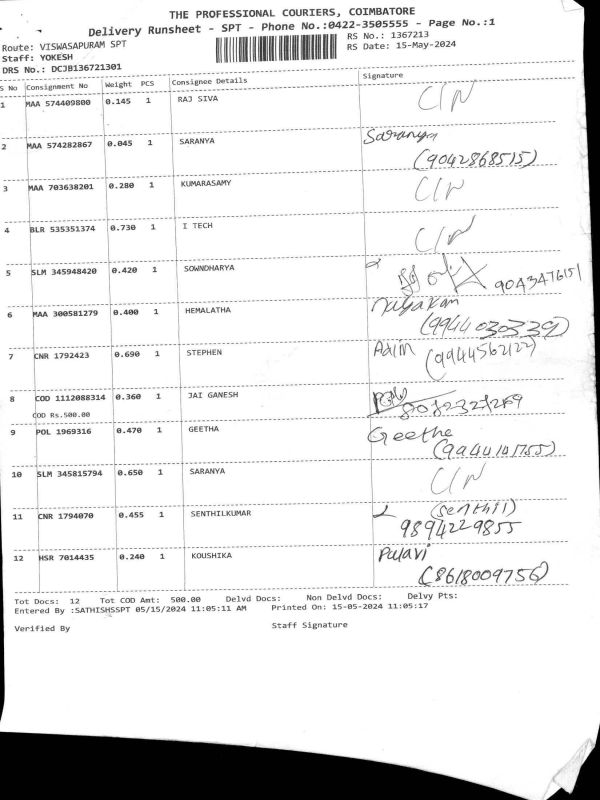 THE PROFESSIONAL COURIERS, COIMBATORE
Delivery Runsheet - SPT - Phone No.:0422-3505555 - Page No.:1
Route: VISWASAPURAM SPT
RS No.: 1367213
Staff: YOKESH
RS Date: 15-May-2024
DRS No.: DCJB136721301
S No Consignment No Weight PCS Consignee Details Signature
1 MAA 574409800 0.145 1 RAJ SIVA C/N
2 MAA 574282867 0.045 1 SARANYA Saranya
(9042868515)
3 MAA 703638201 0.280 1 KUMARASAMY C/N
4 BLR 535351374 0.730 1 I TECH C/N
5 SLM 345948420 0.420 1 SOWNDHARYA 9043476151
6 MAA 300581279 0.400 1 HEMALATHA
(9944030339)
7 CNR 1792423 0.690 1 STEPHEN
(9944562122)
8 COD 1112088314 0.360 1 JAI GANESH
COD Rs.500.00
9 POL 1969316 0.470 1 GEETHA Geetha
(9944141755)
10 SLM 345815794 0.650 1 SARANYA C/N
11 CNR 1794070 0.455 1 SENTHILKUMAR (senthil)
9894229855
12 HSR 7014435 0.240 1 KOUSHIKA Palavi
(8618009756)
Tot Docs: 12 Tot COD Amt: 500.00 Delvd Docs: Non Delvd Docs: Delvy Pts:
Entered By :SATHISHSSPT 05/15/2024 11:05:11 AM Printed On: 15-05-2024 11:05:17
Verified By Staff Signature